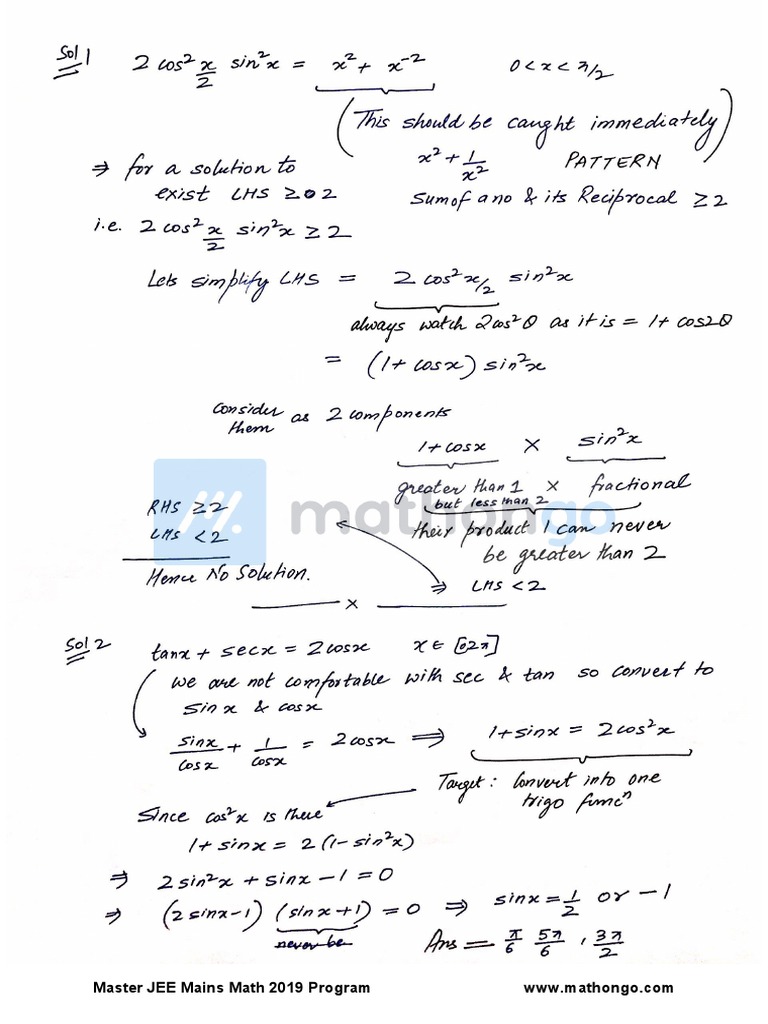 Sol 1 2 cos² x/2 sin²x = x² + x⁻² 0 < x < π/2
(This should be caught immediately)
x² + 1/x² PATTERN
⇒ for a solution to
exist LHS ≥ 2
Sum of a no & its Reciprocal ≥ 2
i.e. 2 cos² x/2 sin²x ≥ 2
Lets simplify LHS = 2 cos² x/2 sin²x
always watch 2cos²θ as it is = 1 + cos2θ
= (1 + cosx) sin²x
Consider them as 2 components
1 + cosx × sin²x
greater than 1 × fractional
but less than 2
RHS ≥ 2
mathongo
their product can never
LHS < 2
be greater than 2
Hence No Solution.
⇒ LHS < 2
×
Sol 2 tanx + secx = 2cosx x ∈ [0 2π]
we are not comfortable with sec & tan so convert to
sin x & cosx
sinx/cosx + 1/cosx = 2cosx ⇒ 1 + sinx = 2cos²x
Target: Convert into one
trigo funcⁿ
Since cos²x is there
1 + sinx = 2(1 - sin²x)
⇒ 2sin²x + sinx - 1 = 0
⇒ (2 sinx - 1) (sinx + 1) = 0 ⇒ sinx = 1/2 or -1
never be
Ans = π/6 5π/6 , 3π/2
Master JEE Mains Math 2019 Program www.mathongo.com